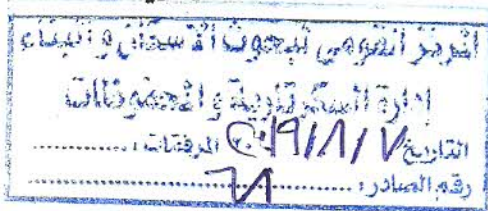 المركز القومى لبحوث الاسكان والبناء
إدارة السكرتارية والمحفوظات
التاريخ ٢٠١٩/١/٧ المرفقات :
رقم الصادر : ٦٨